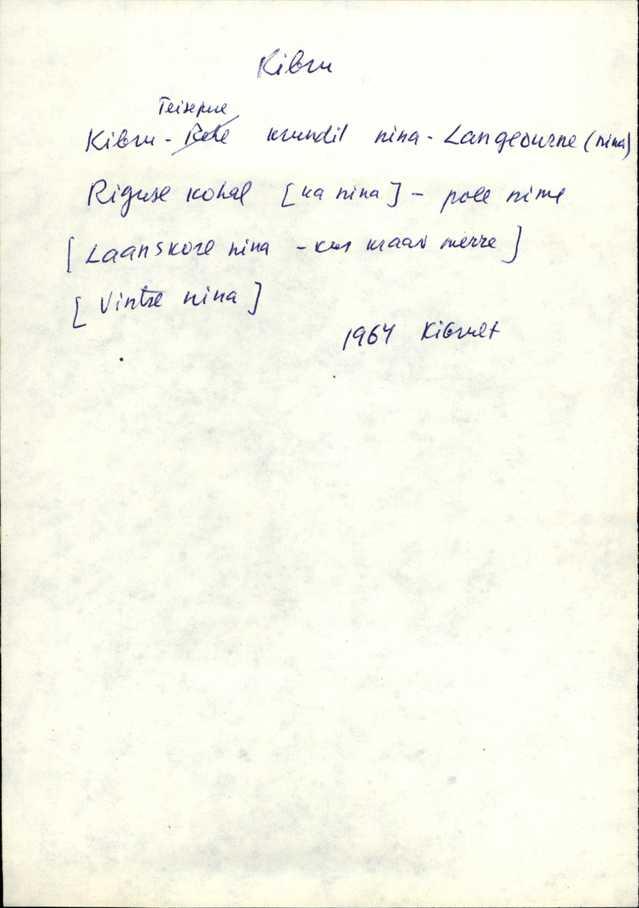 Kibru
Teisepere
Kibru - krundil nina - Langeourne (nina)
Riguse kohal [ka nina] - pole nime
[Laanskore nina - kus kraavi merre]
[Vintse nina]
1964 Kibrult